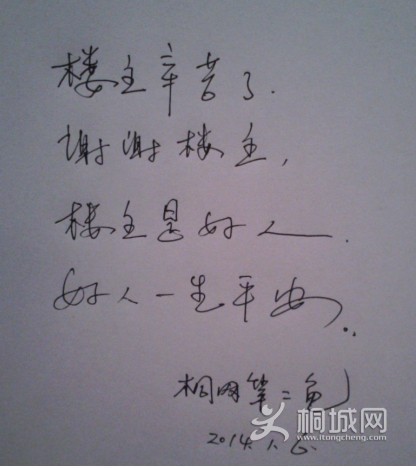 楼主辛苦了.
谢谢楼主,
楼主是好人.
好人一生平安..
桐网第二鱼
2014.1.6.
桐城网
www.itongcheng.com